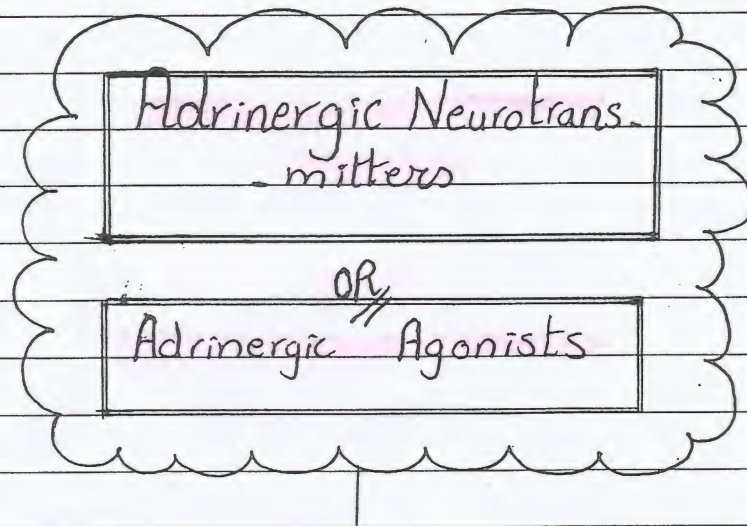 Adrinergic Neurotrans-
mitters
OR
Adrinergic Agonists